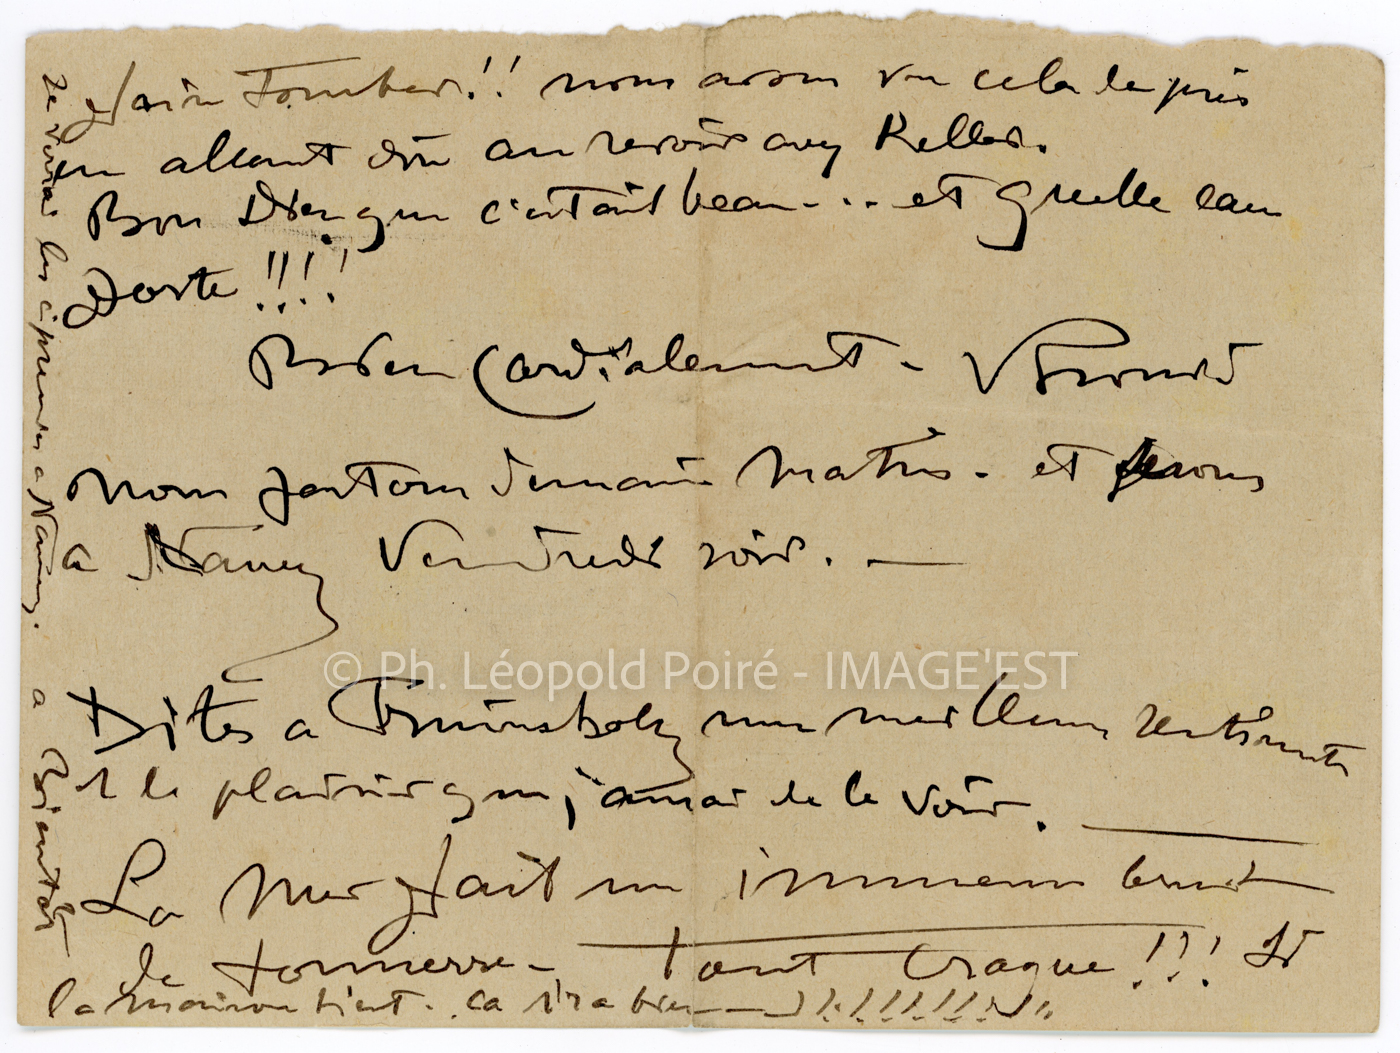 faire tomber !! nous avons vu cela de près
en allant dire au revoir avez Keller.
Bon Dieu que c'etait beau - .. et quelle eau
forte !!!!
Bien Cordialement - VProuvé
Nous partons demain matin - et serons
a Nancy Vendredi soir. —
© Ph. Léopold Poiré - IMAGE'EST
Dites a mes meilleurs sentiments
et le plaisir que j'aurai de le voir. —
La Mer fait un immense bruit
de tonnerre - Tout Craque !!! Si
la maison tient - ca ira bien — !!!!!!!!!
Je verrai les épreuves a Nancy. a Bientôt